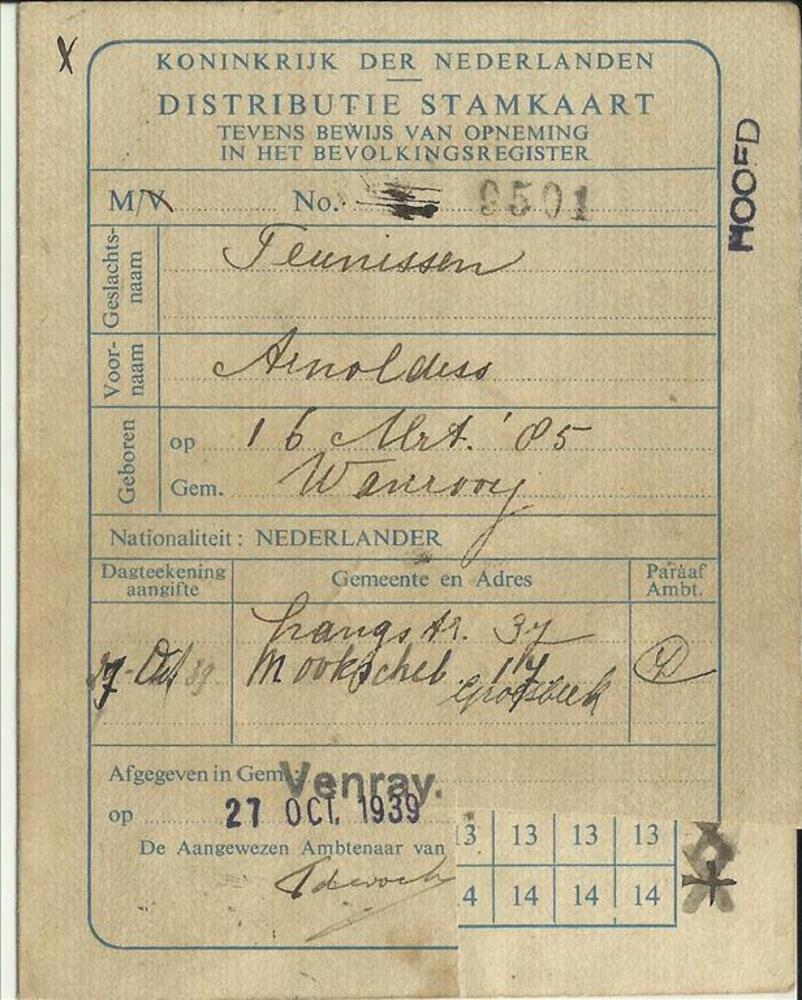 X
KONINKRIJK DER NEDERLANDEN
DISTRIBUTIE STAMKAART
TEVENS BEWIJS VAN OPNEMING
IN HET BEVOLKINGSREGISTER
HOOFD
M/V No. 9501
Geslachts-
naam
Teunissen
Voor-
naam
Arnoldus
Geboren
op 16 Mrt. '85
Gem. Wanrooy
Nationaliteit: NEDERLANDER
Dagteekening
aangifte
Gemeente en Adres
Paraaf
Ambt.
Langstr. 37
27-Oct 39 Mookscheb. 17
Groesbeek
Afgegeven in Gem.: Venray.
op 27 OCT. 1939
De Aangewezen Ambtenaar van
13 13 13 13
14 14 14 14